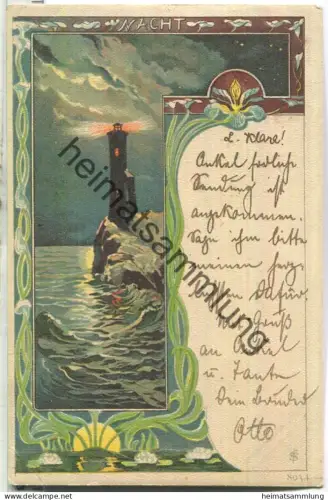 NACHT
L. Klare!
Onkel
Sendung ist
angekommen.
Sage ihm bitte
meinen herz-
lichen Dafür.
Gruß
an Onkel
u. Tante
Dein Bruder
Otto
heimatsammlung.de
www.delcampe.net
heimatsammlung